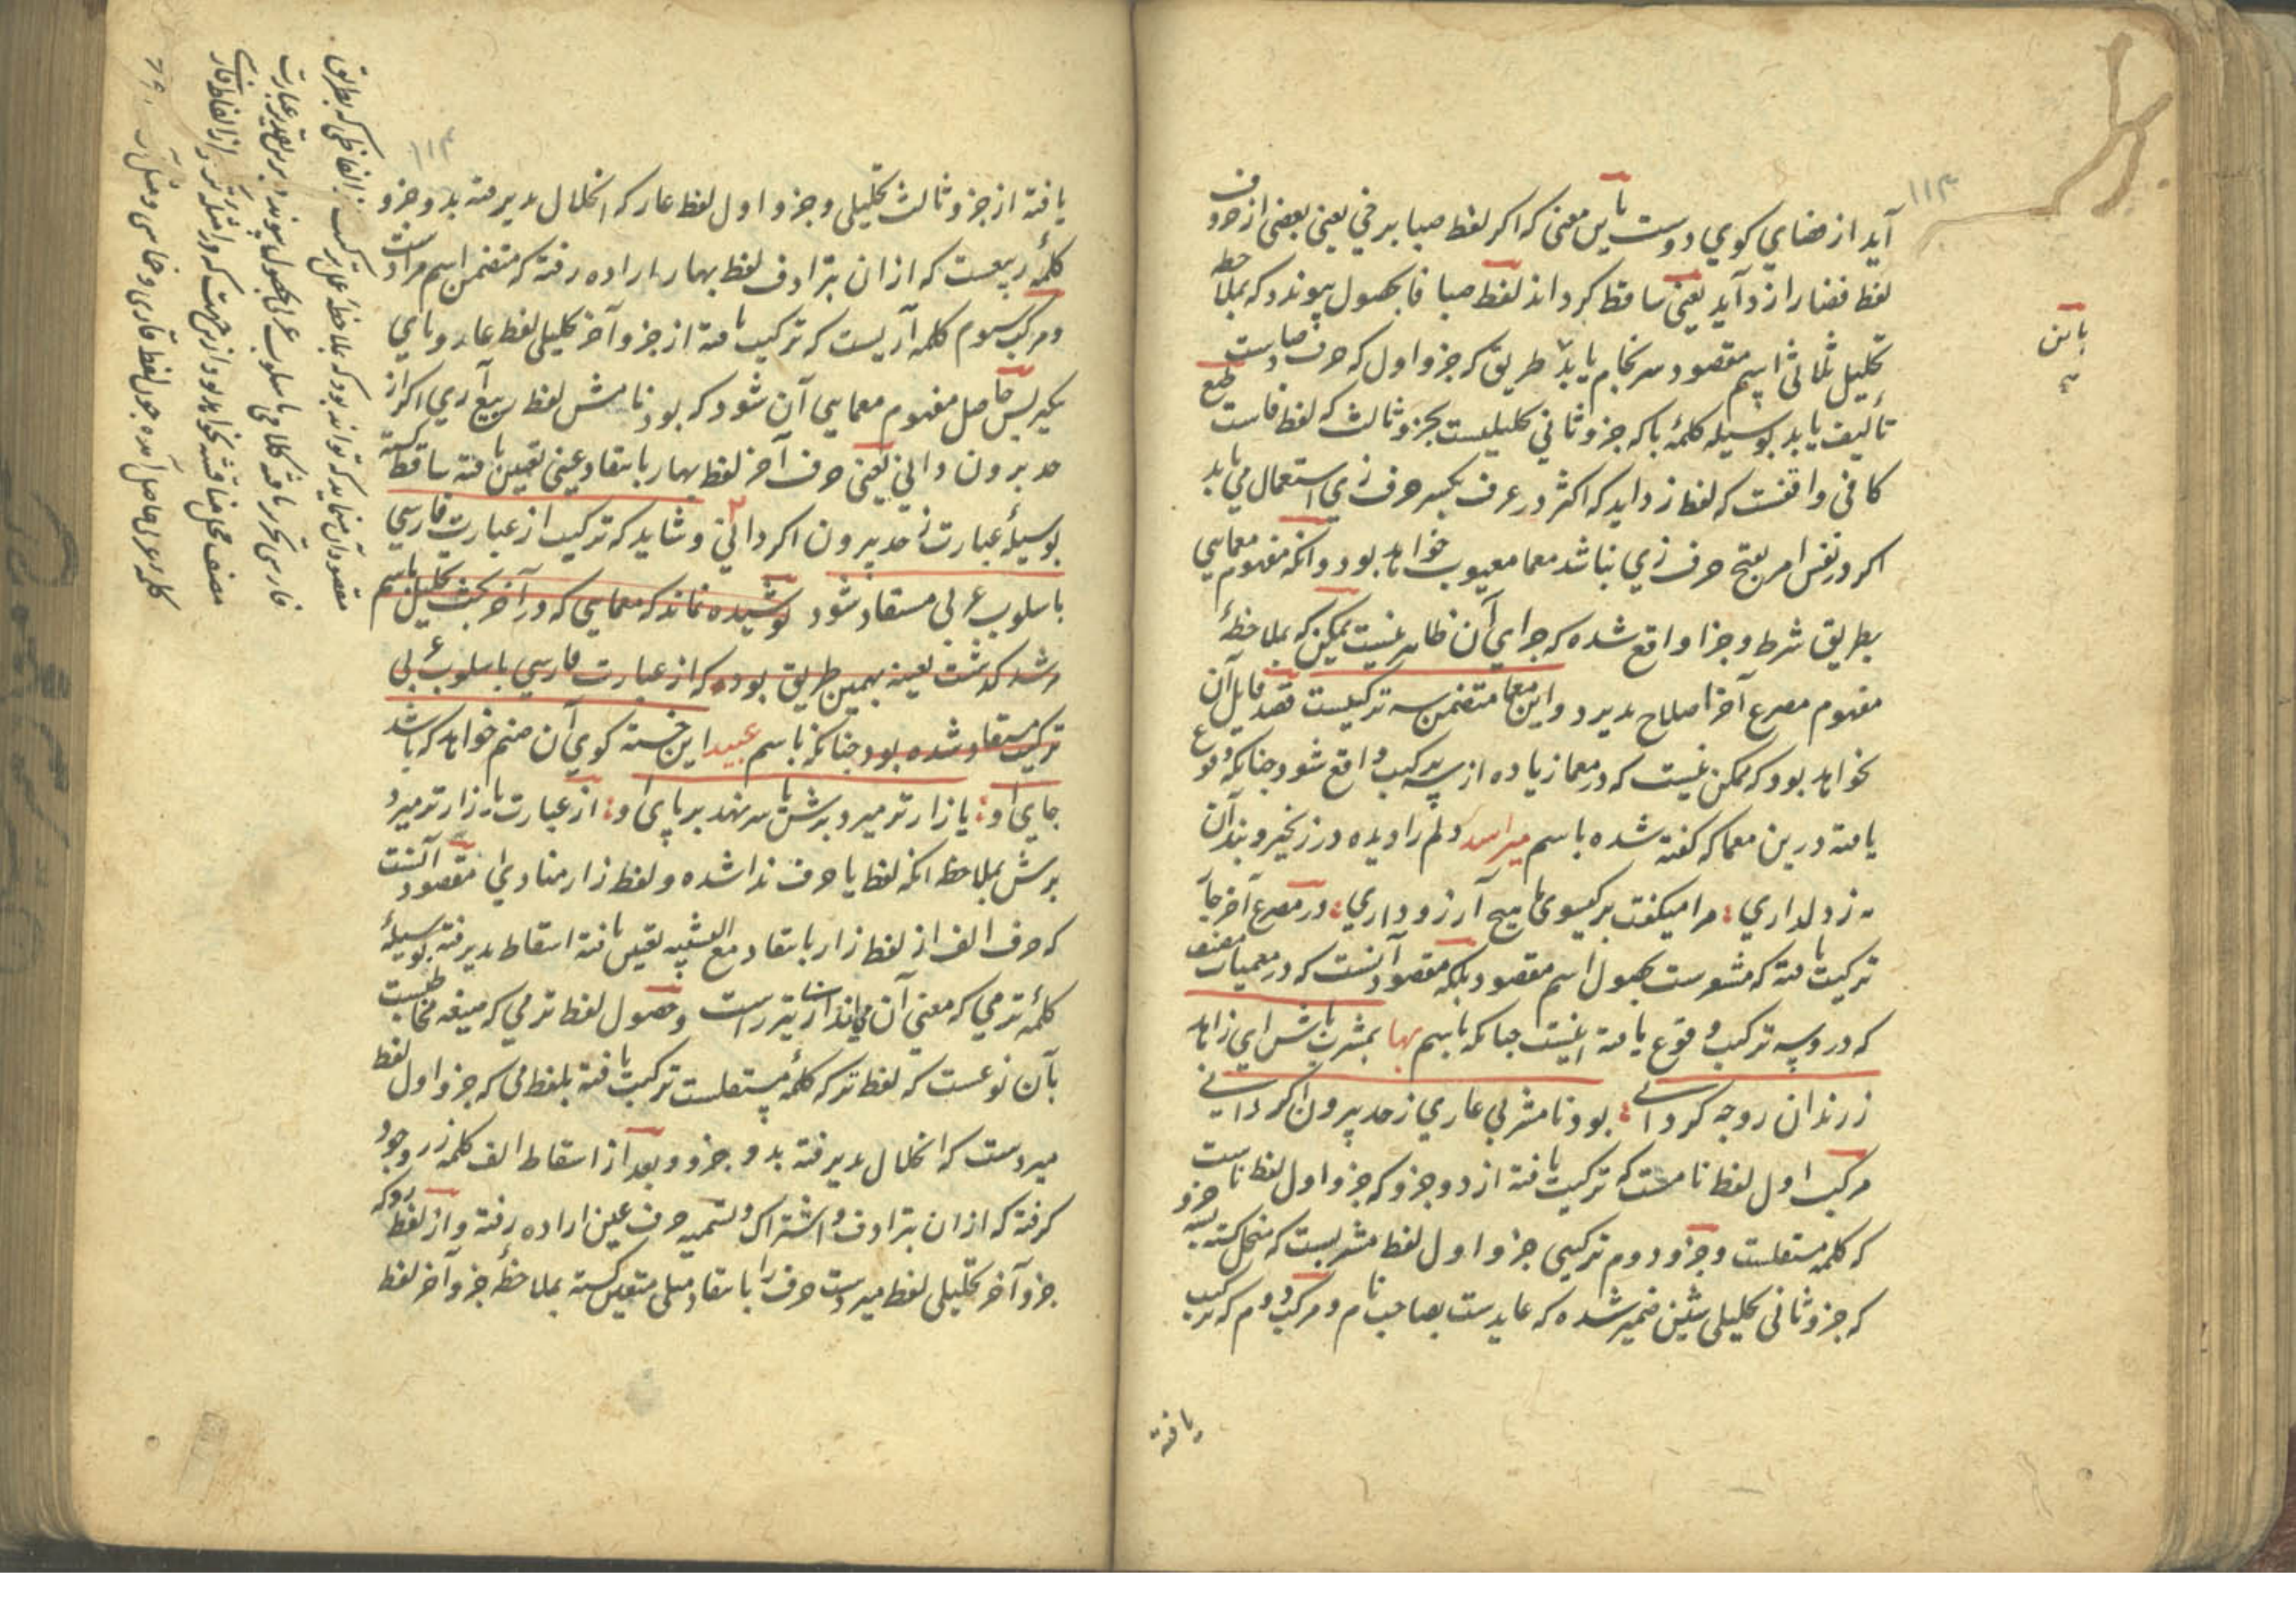 ۱۱۳
آید از فضای کوی دوست باین معنی که اکر لفظ صبا برخی یعنی بعضی از حروف
لفظ فضا را زداید یعنی ساقط کرداند لفظ صبا فا بحصول پیوندد که بملاحظه
تحلیل ثلاثی اسم مقصود سرنجام یابد بدین طریق که جزو اول که حرف صادست
تألیف یابد بوسیله کلمهٔ با که جزو ثانی تحلیلیست بجزو ثالث که لفظ فاست
کافی واقفست که لفظ زداید که اکثر در عرف بکسر حرف زی استعمال می یابد
اکر در نفس امر بفتح حرف زی نباشد معما معیوب خواهد بود و انکه مفهوم معمایی
بطریق شرط و جزا واقع شده که جرای آن ظاهر نیست ممکن که بملاحظهٔ
مفهوم مصرع آخر اصلاح پذیرد و این معما متضمن سه ترکیبست قصد قایل آن
نخواهد بود که ممکن نیست که در معما زیاده از سه ترکیب واقع شود چنانکه وقوع
یافته درین معما که کفته شده باسم دلم را دیده در زنجیر و بند آن
دلداری مرا میکفت بر کیسوی ما هیچ آرزو داری در مصرع آخر
ترکیب یافته که مشعرست بحصول اسم مقصود بلکه مقصود آنست که در معمیات مصنف
که درو سه ترکیب وقوع یافته اینست چنانکه باسم بها بمشرب باش ای زاهد
ز رندان رو چه کردانی بود نامشربی عاری ز حد بیرون اکر دانی
مرکب اول لفظ نامست که ترکیب یافته از دو جزو که جزو اول لفظ ناست
که کلمه مستقلست و جزو دوم ترکیبی جزو اول لفظ مشربیست که منحل کشته بسه جزو
که جزو ثانی تحلیلی شین ضمیر شده که عایدست بصاحب نام و مرکب دوم که ترکیب
باین
یافته
۱۱۴
یافته از جزو ثالث تحلیلی و جزو اول لفظ عار که انحلال پذیرفته بدو جزو
کلمهٔ ربیعست که ازان بترادف لفظ بهار اراده رفته که متضمن اسم مرادست
و مرکب سوم کلمه آریست که ترکیب یافته از جزو آخر تحلیلی لفظ عار و یای
نکیر پس حاصل مفهوم معمایی آن شود که بود نامش لفظ ربیع آری اکر از
حد برون دانی یعنی حرف آخر لفظ بهار بانتقاد عینی تعیین یافته ساقط کشته
بوسیلهٔ عبارت ز حد بیرون اکر دانی و شاید که ترکیب از عبارت فارسی
باسلوب عربی مستفاد شود پوشیده نماند که معمایی که در آخر بحث تحلیل باسم
مرشد کذشت بعینه بهمین طریق بود که از عبارت فارسی باسلوب عربی
ترکیب مستفاد شده بود چنانکه باسم عبید این خسته کوی آن صنم خواهد که باشد
جای او یا زار تر میرد برش یا سر نهد بر پای او از عبارت یا زار تر میرد
برش بملاحظه انکه لفظ یا حرف ندا شده و لفظ زار منادی مقصود آنست
که حرف الف از لفظ زار بانتقاد مع التشبیه تعیین یافته اسقاط پذیرفته بوسیلهٔ
کلمهٔ ترمی که معنی آن می اندازست و حصول لفظ ترمی که صیغه مخاطبست
بآن نوعست که لفظ تر که کلمهٔ مستقلست ترکیب یافته بلفظ می که جزو اول لفظ
میردست که انحلال پذیرفته بدو جزو و بعد از اسقاط الف کلمه زر وجود
کرفته که ازان بترادف و اشتراک و تسمیه حرف عین اراده رفته و از لفظ رو که
جزو آخر تحلیلی لفظ میردست حرف را بانتقاد مثلی متعین کشته بملاحظهٔ جزو آخر لفظ
الفاظی که بطریق
مقصود آن مینماید که تواند بود که بملاحظه عمل ترکیب
فارسی تحریر یافته کلامی باسلوب عربی بحصول پیوندد برین تقدیر عبارت
مصنف محل مناقشه نخواهد بود ازین جهت که در امثله از الفاظ فارسی
کلمه عربی حاصل آمده چون لفظ فارسی و